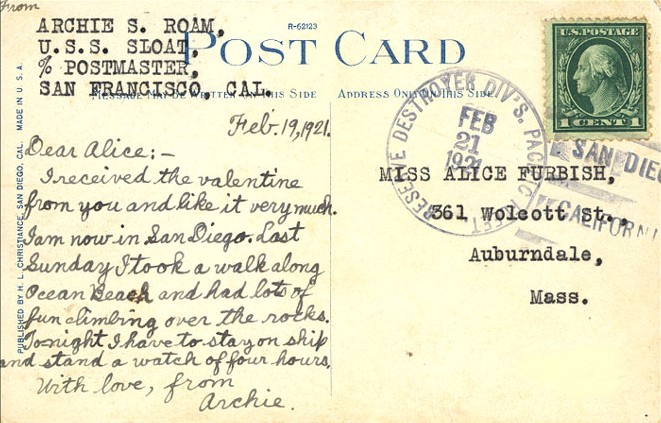 From
ARCHIE S. ROAM,
U.S.S. SLOAT,
% POSTMASTER,
SAN FRANCISCO, CAL.
R-62123
POST CARD
MESSAGE MAY BE WRITTEN ON THIS SIDE
ADDRESS ONLY ON THIS SIDE
Feb. 19, 1921.
Dear Alice:-
I received the valentine
from you and like it very much.
I am now in San Diego. Last
Sunday I took a walk along
Ocean Beach and had lots of
fun climbing over the rocks.
Tonight I have to stay on ship
and stand a watch of four hours.
With love, from
Archie.
PUBLISHED BY H. L. CHRISTIANCE, SAN DIEGO, CAL. MADE IN U. S. A.
RESERVE DESTROYER DIV'S. PACIFIC FLEET
FEB
21
1921
U.S. POSTAGE
1 CENT 1
SAN DIEG
CALIFORNI
MISS ALICE FURBISH,
361 Wolcott St.,
Auburndale,
Mass.